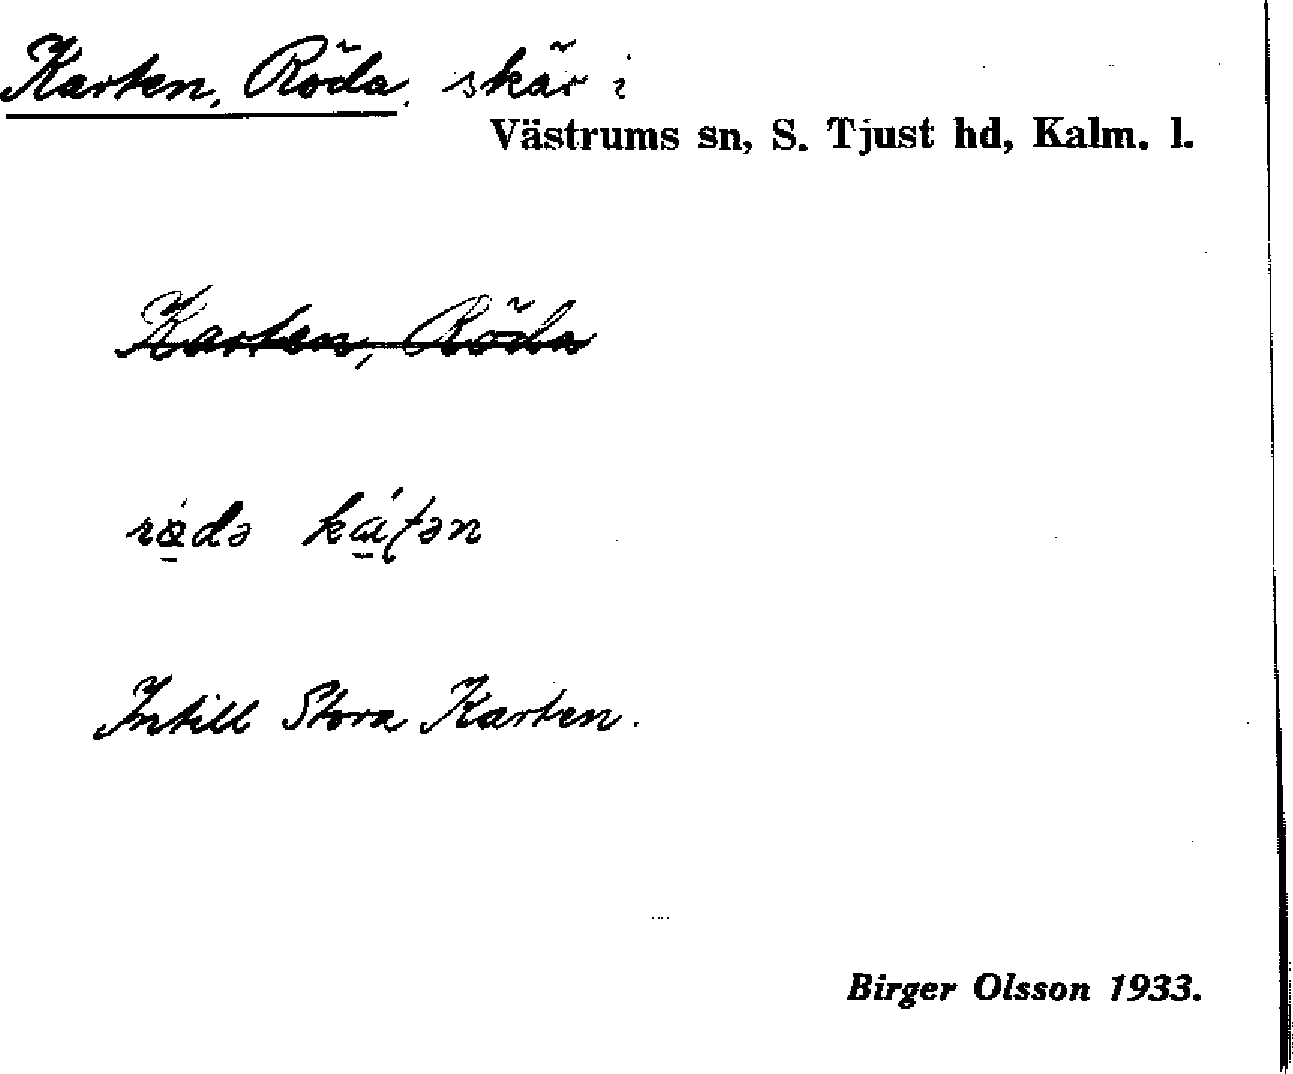 Karten, Röda, skär i
Västrums sn, S. Tjust hd, Kalm. l.
Karten, Röda
Intill Stora Karten.
Birger Olsson 1933.